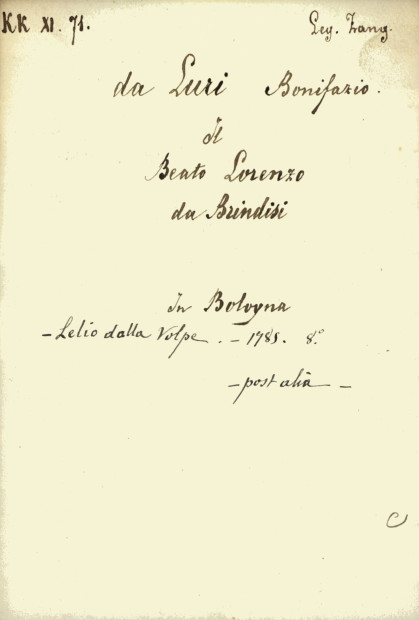 KK XI. 71. Leg. Zang.
da Luri Bonifazio.
Il
Beato Lorenzo
da Brindisi
In Bologna
- Lelio dalla Volpe. - 1785. 8.°
- post alia -
C